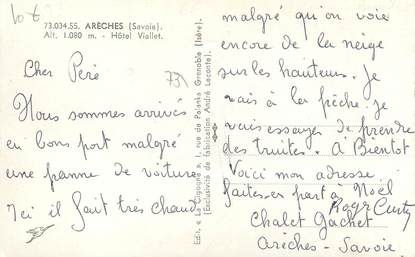 73.034.55. ARÈCHES (Savoie).
Alt. 1.080 m. - Hôtel Viallet.
Cher Péré
Nous sommes arrivés
en bons port malgré
une panne de voiture
Ici il fait très chaud
Edit. « La Cigogne », 1, rue de Palanka Grenoble (Isère).
(Exclusivité de fabrication André Leconte).
malgré qu'on voie
encore de la neige
sur les hauteurs. Je
vais à la pêche. je
vais essayer de prendre
des truites. à Bientot
Voici mon adresse
faites en part à Noël
Roger
Chalet Gachet
Arèches - Savoie